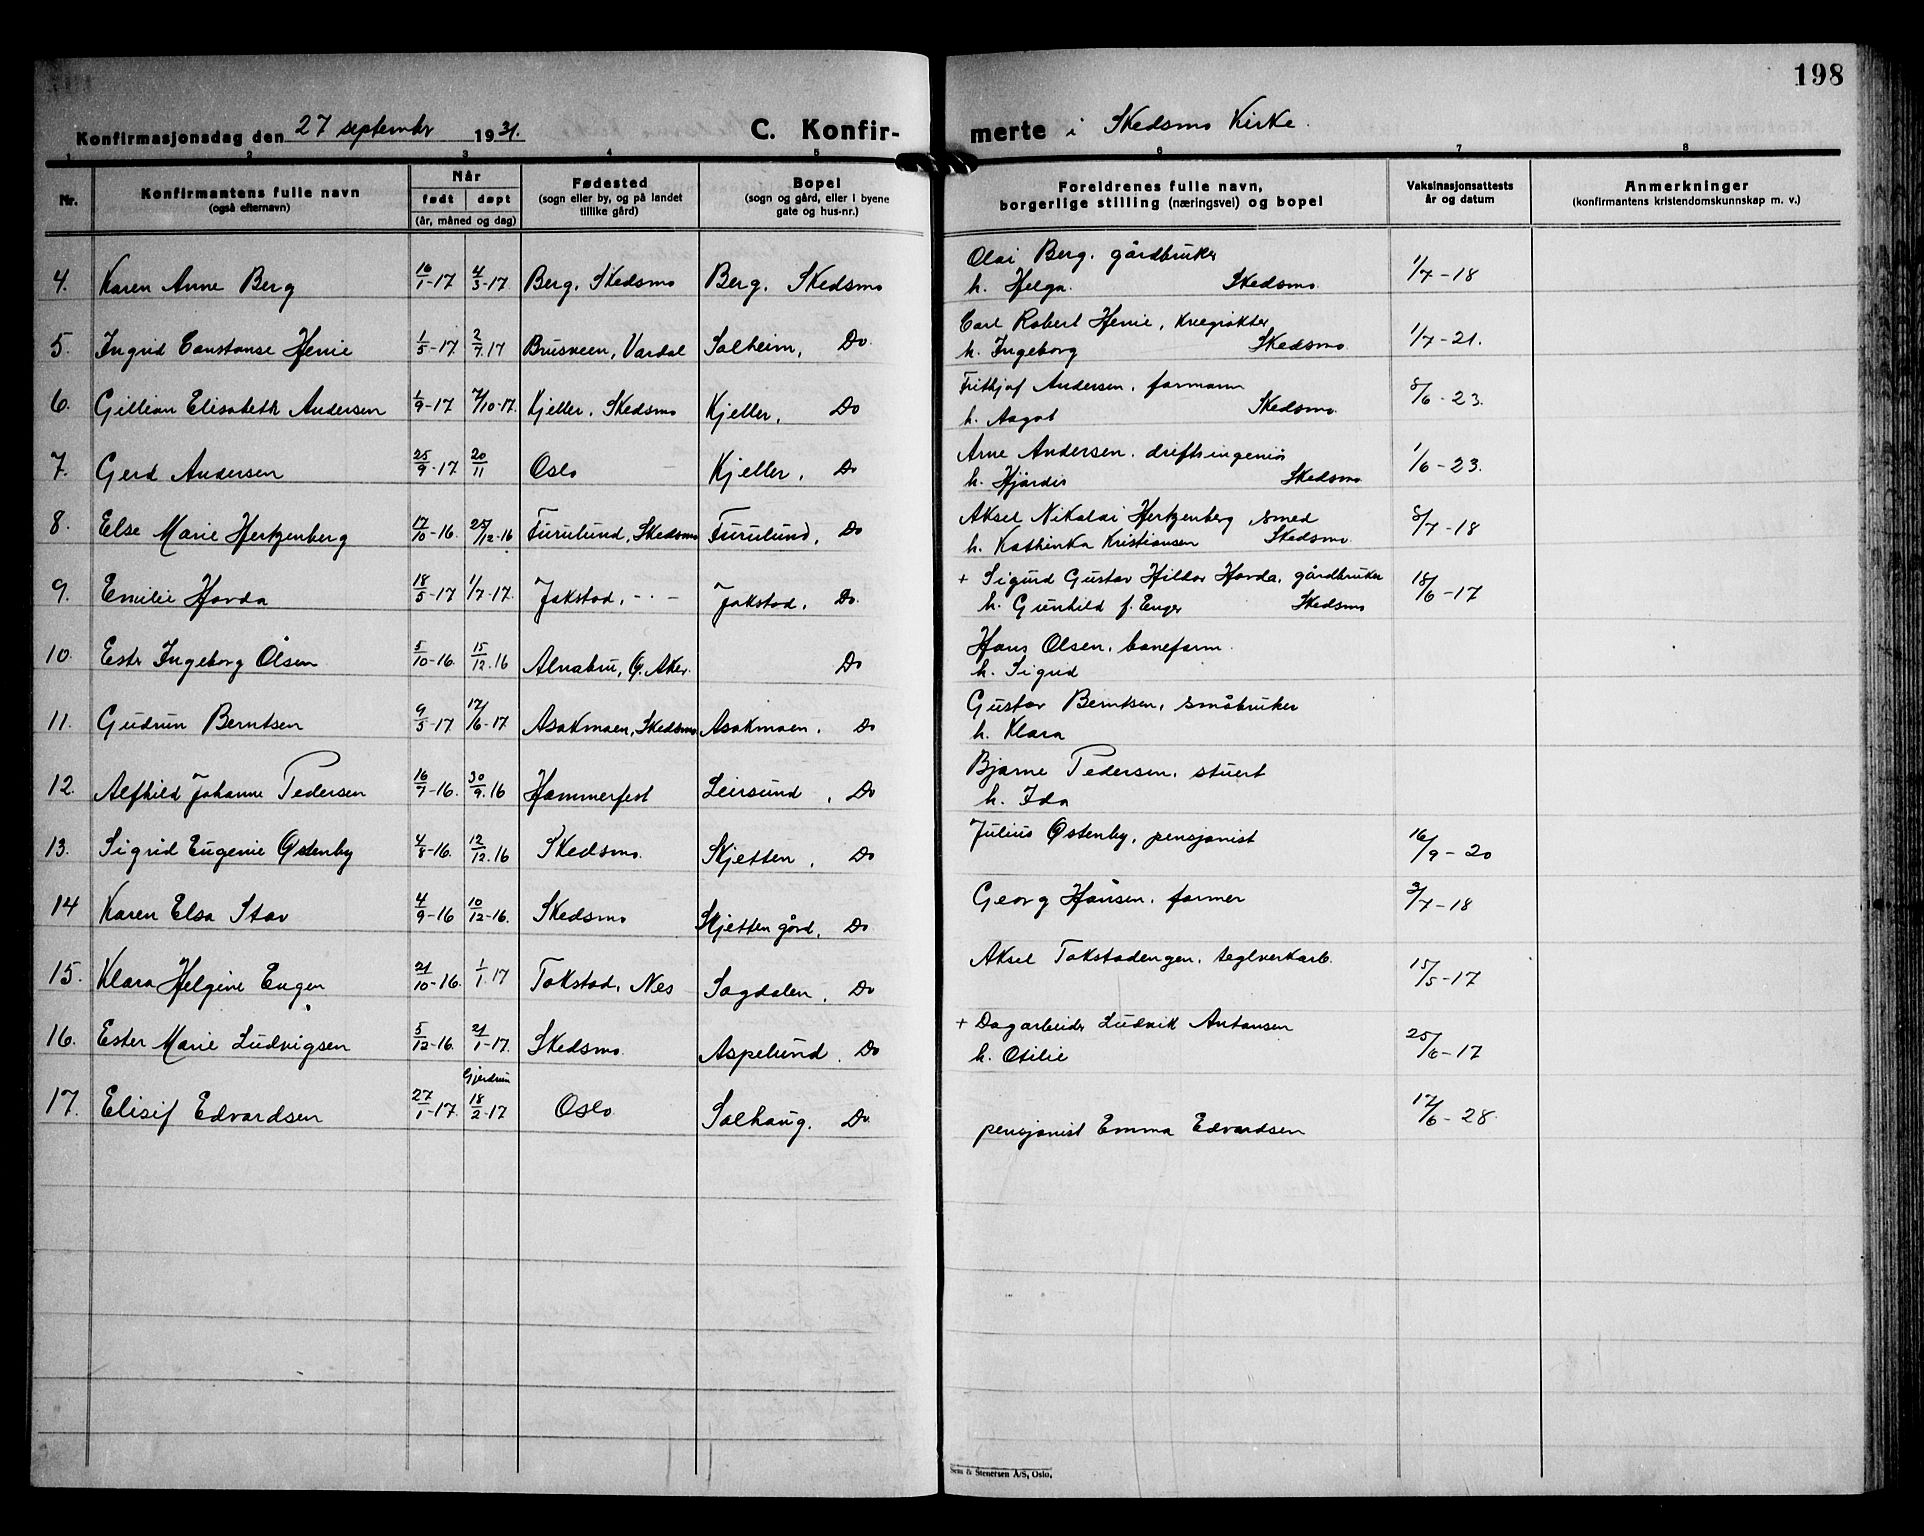 198
Konfirmasjonsdag den 27 september 1931. C. Konfir- merte i Skedsmo Kirke.
1 2 3 4 5 6 7 8
Nr. Konfirmantens fulle navn (også efternavn) Når født døpt (år, måned og dag) Fødested (sogn eller by, og på landet tillike gård) Bopel (sogn og gård, eller i byene gate og hus-nr.) Foreldrenes fulle navn, borgerlige stilling (næringsvei) og bopel Vaksinasjonsattests år og datum Anmerkninger (konfirmantens kristendomskunnskap m. v.)
Olai Berg, gårdbruker
4. Karen Anne Berg 16/1-17 4/3-17 Berg, Skedsmo Berg, Skedsmo h. Helga. Skedsmo. 1/7-18
Carl Robert Henie, krøtterrøkter
5. Ingrid Constanse Henie 1/5-17 2/7.17 Brusveen, Vardal Solheim, Do. h. Ingeborg Skedsmo. 1/7-21.
Frithjof Andersen, formann
6. Gillian Elisabeth Andersen 1/9-17 7/10-17. Kjeller, Skedsmo Kjeller, Do h. Aagot Skedsmo. 8/6-23.
Arne Andersen, driftsingeniør
7. Gerd Andersen 25/9-17 20/11 Oslo Kjeller, Do h. Hjørdis Skedsmo 1/6-23.
Aksel Nikolai Hertzenberg, smed
8. Else Marie Hertzenberg 17/10-16. 25/12-16 Furulund, Skedsmo Furulund, Do h. Kathinka Kristiansen Skedsmo. 8/7-18
+ Sigurd Gustav Hildor Hovda, gårdbruker
9. Emilie Hovda 18/5-17 1/7-17. Jakstad, - · - Jakstad, Do. h. Gunhild f. Enger Skedsmo 18/6-17
Hans Olsen, baneform.
10. Ester Ingeborg Olsen 5/10-16. 15/12.16 Alnabru, Ø. Aker. Do h. Sigrid
Gustav Berntsen, småbruker
11. Gudrun Berntsen 9/5-17 17/6-17 Asakmoen, Skedsmo Asakmoen, Do h. Klara
Bjarne Pedersen, stuert
12. Alfhild Johanne Pedersen 16/7-16. 30/9.16 Hammerfest Leirsund, Do h. Ida
13. Sigrid Eugenie Østenby 4/8-16. 12/12.16 Skedsmo. Skjetten, Do Julius Østenby, pensjonist 16/9-20
14 Karen Elsa Stav 4/9-16 10/12-16. Skedsmo Skjetten gård, Do Georg Hansen, farmer 3/7-18
15. Klara Helgine Enger 21/10-16. 1/1.17 Tokstad, Nes Sagdalen, Do Aksel Tokstadengen, teglverkarb. 15/5-17
+ Dagarbeider Ludvik Antonsen
16. Ester Marie Ludvigsen 5/12-16. 21/1-17. Skedsmo. Aspelund, Do h. Otilie 25/6-17
Gjerdrum
17. Elisif Edvardsen 27/1-17. 18/2-17 Oslo Solhaug, Do. pensjonist Emma Edvardsen 12/6-28.
Sem & Stenersen A/S, Oslo.